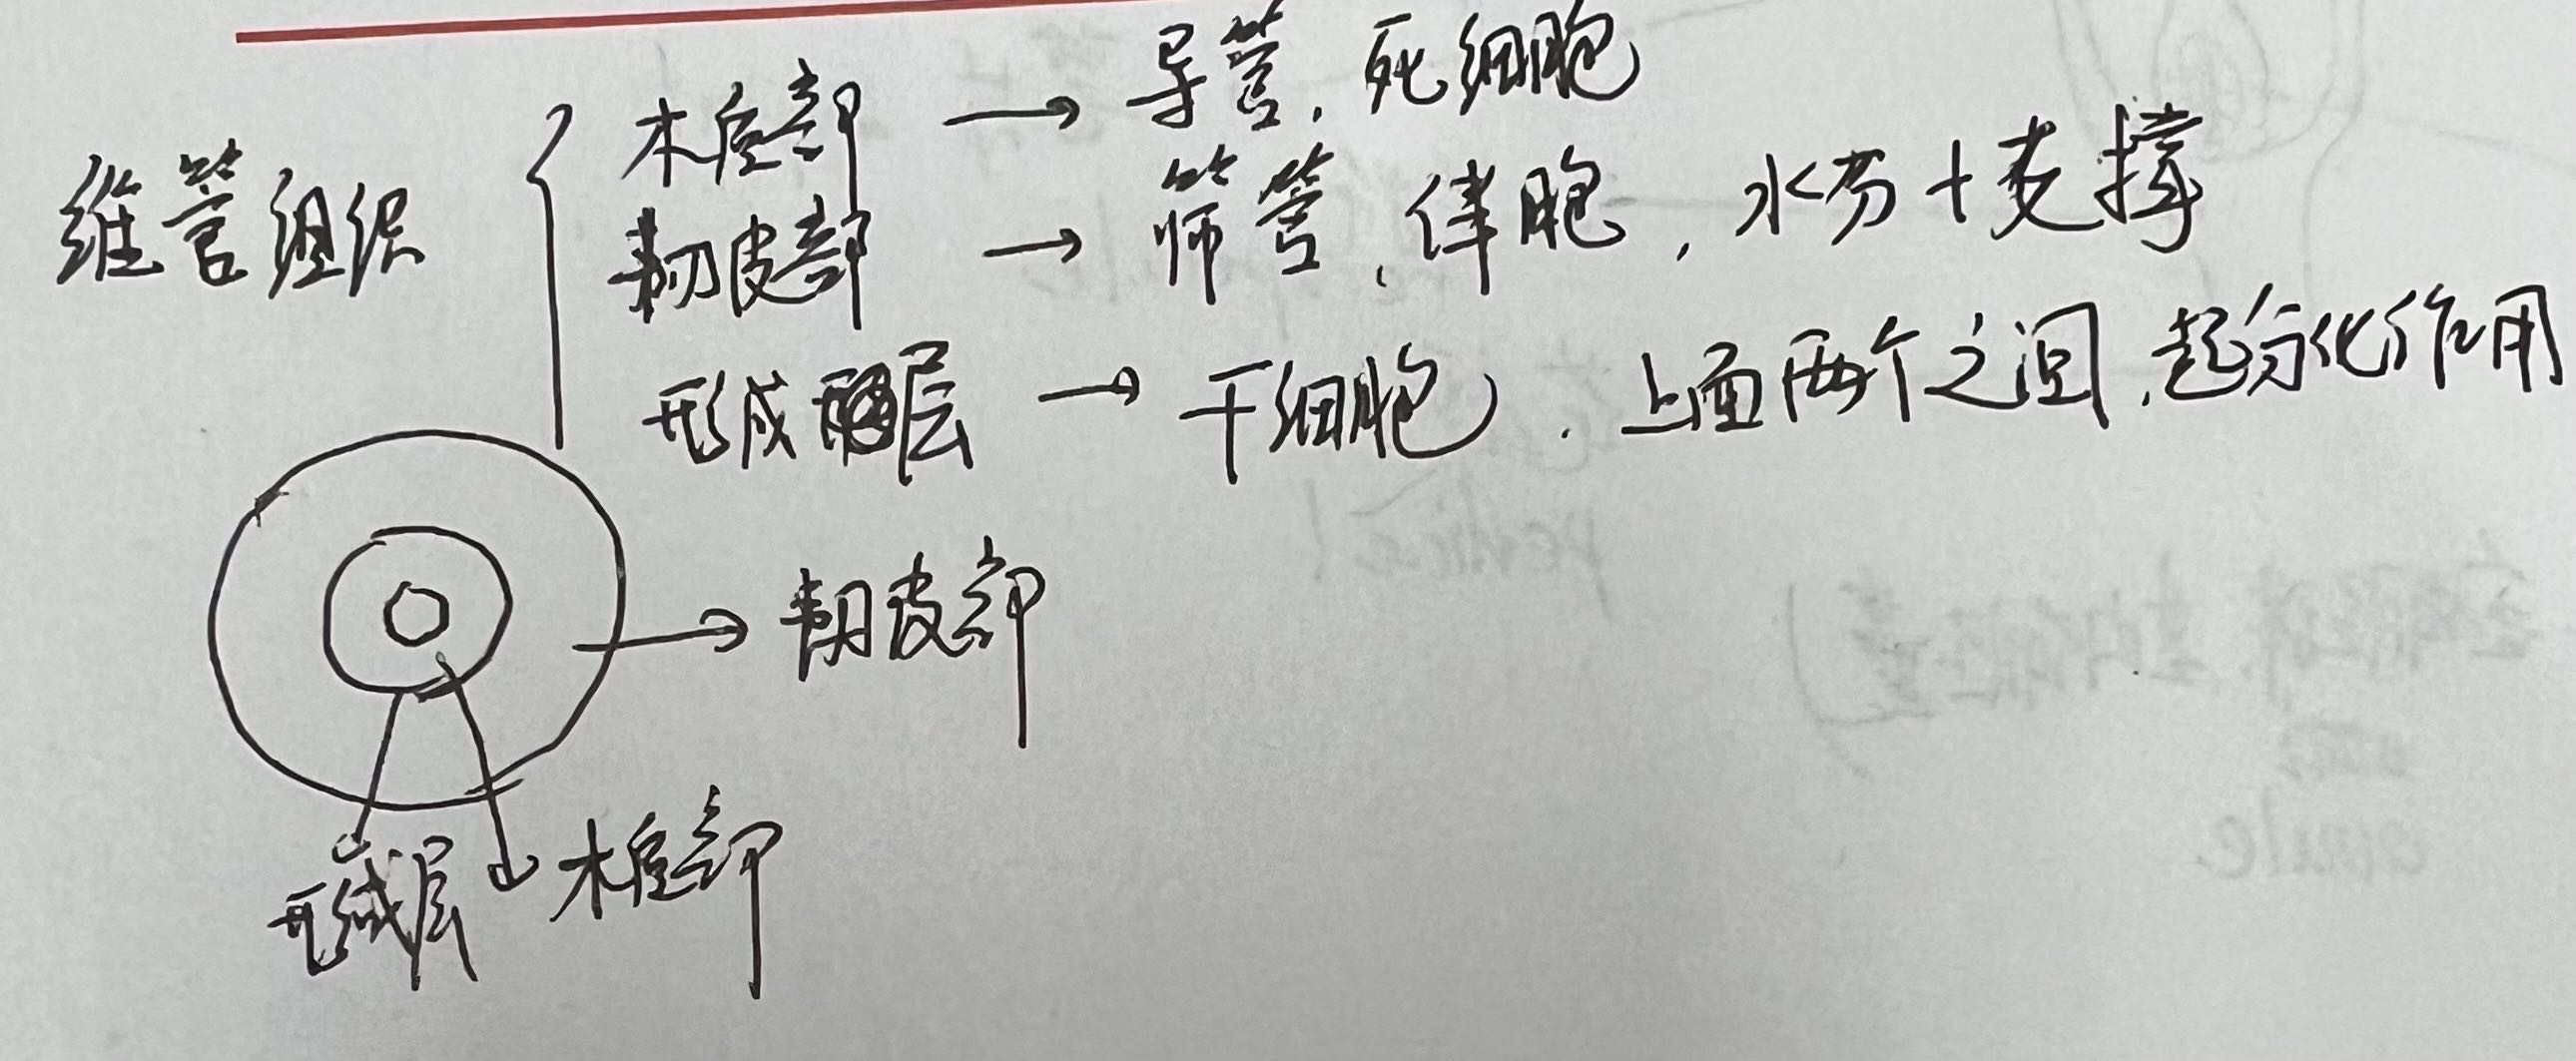 维管组织
木质部 → 导管, 死细胞
韧皮部 → 筛管, 伴胞, 水分+支撑
形成层 → 干细胞. 上面两个之间, 起分化作用
韧皮部
形成层 木质部